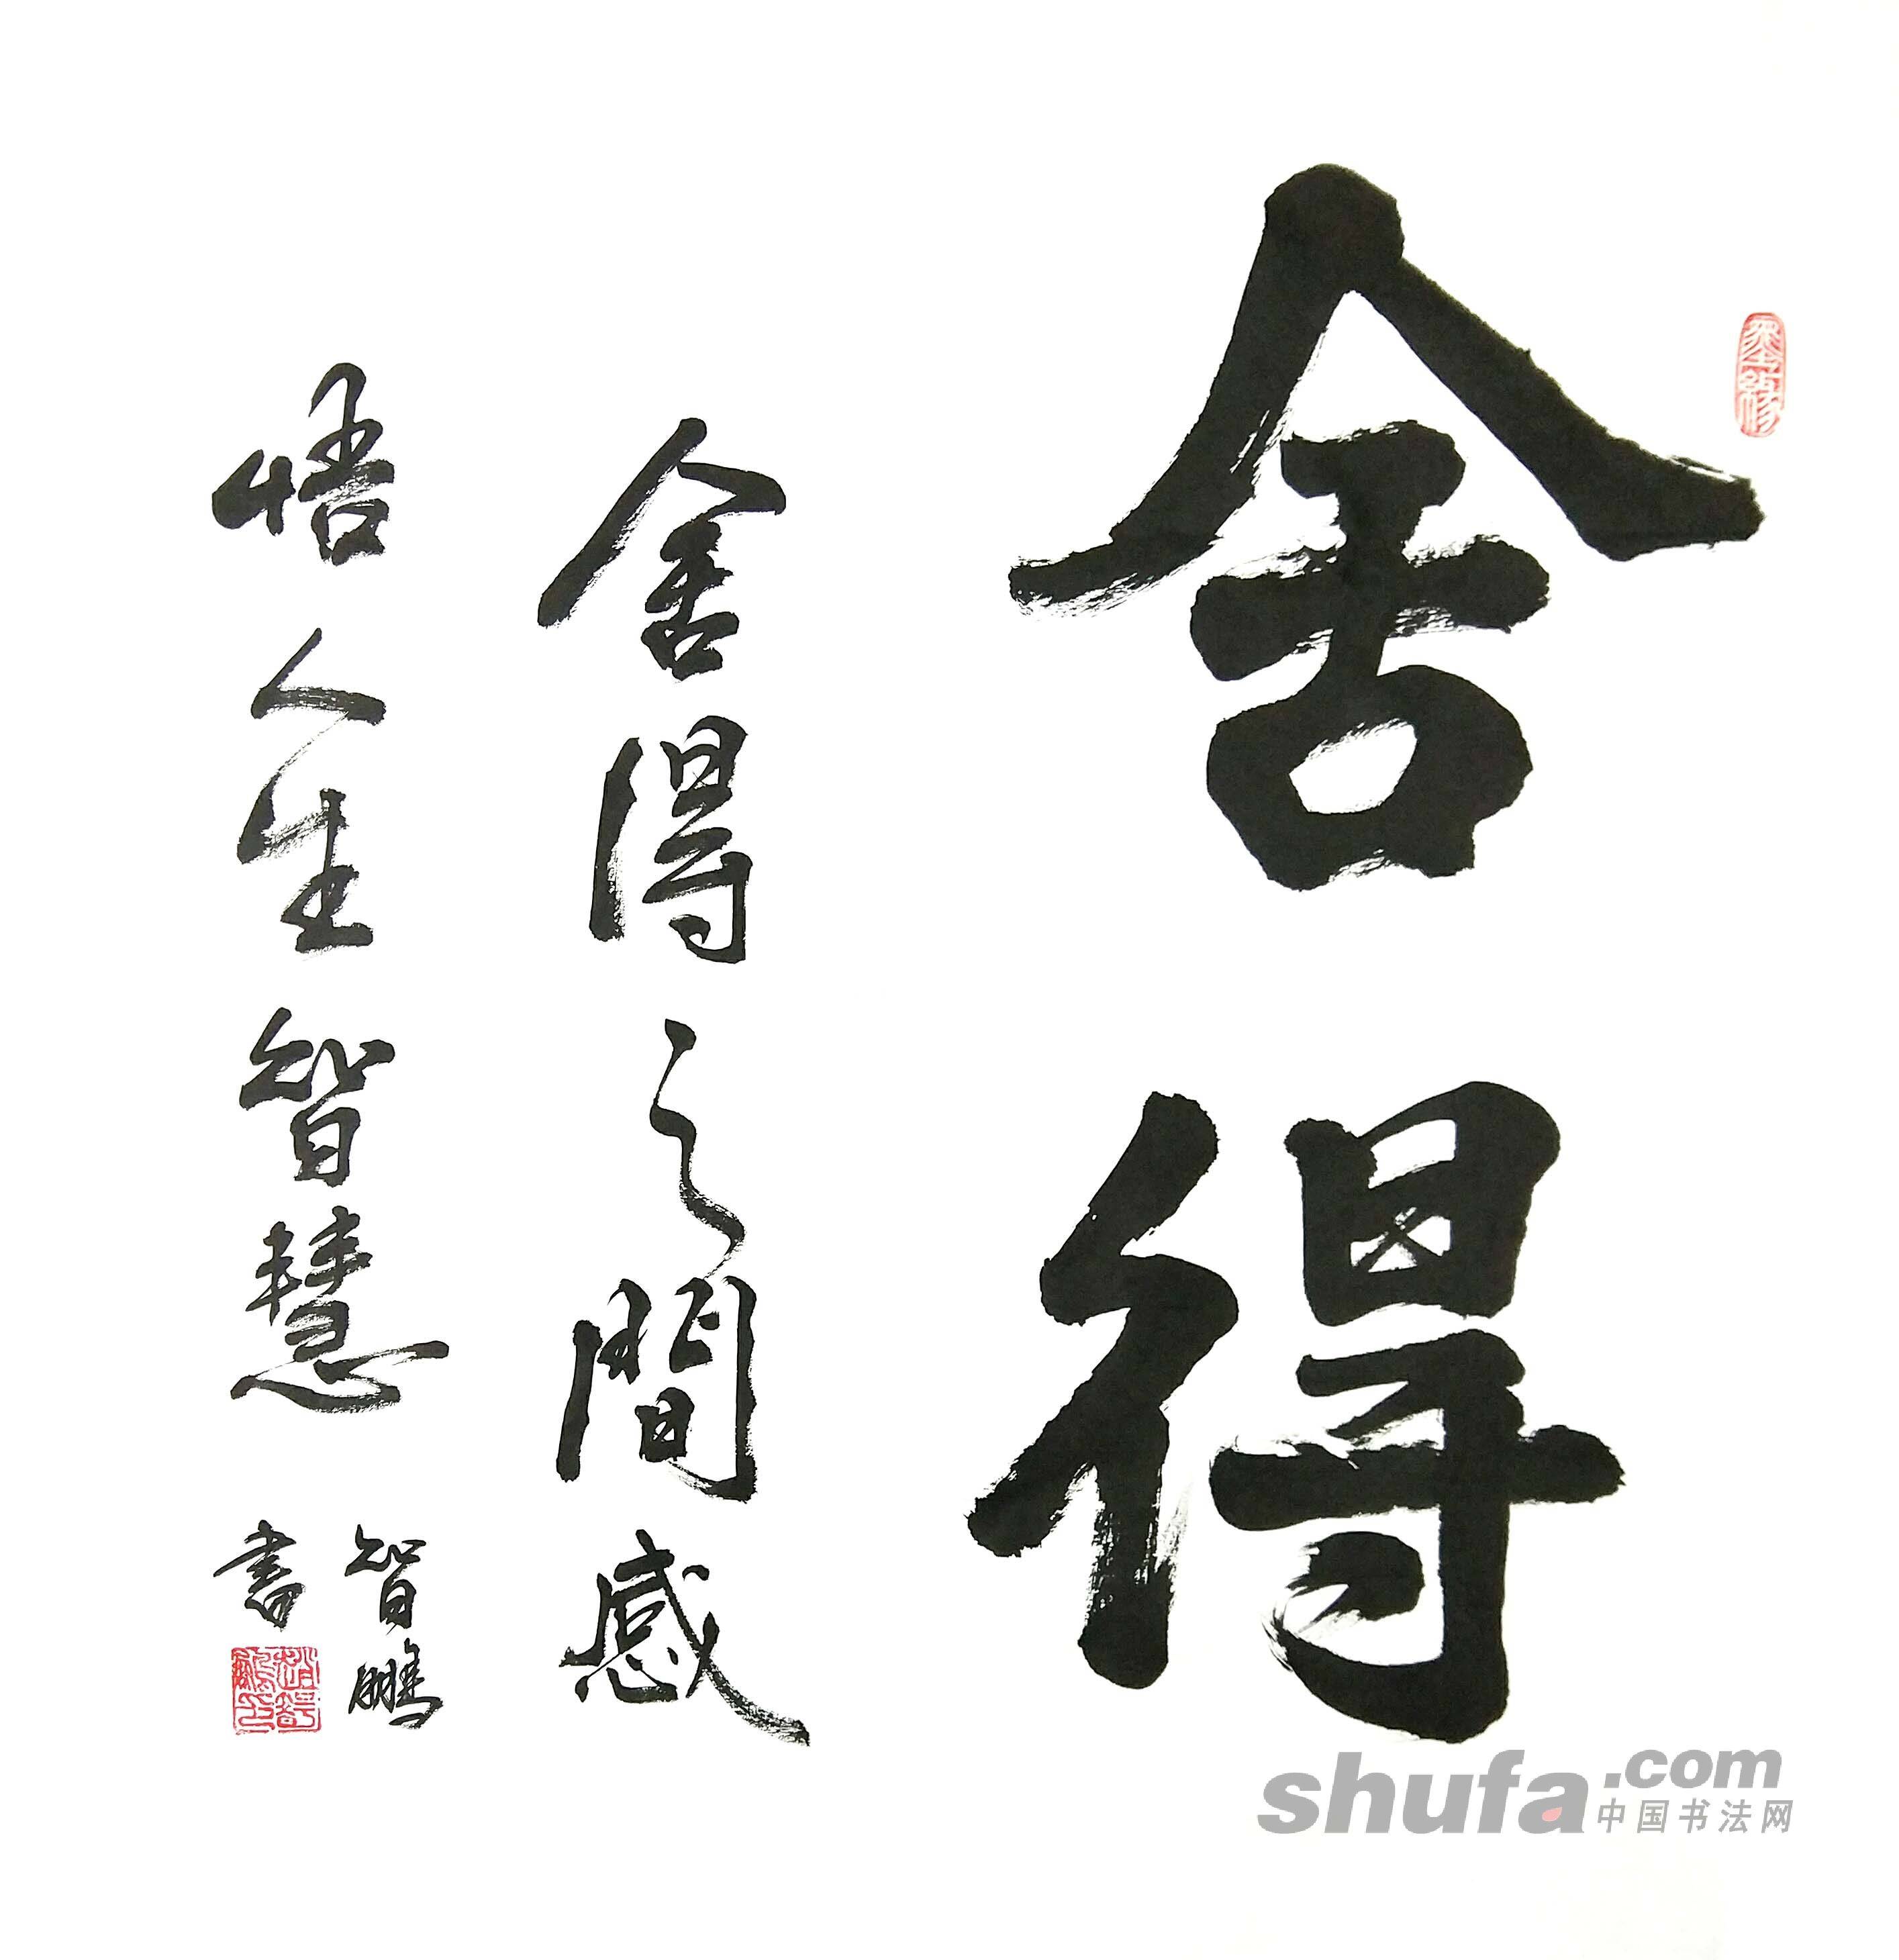 舍得
舍得之間感
悟人生智慧
智鵬
書
墨缘
趙智鵬印
shufa.com
中国书法网